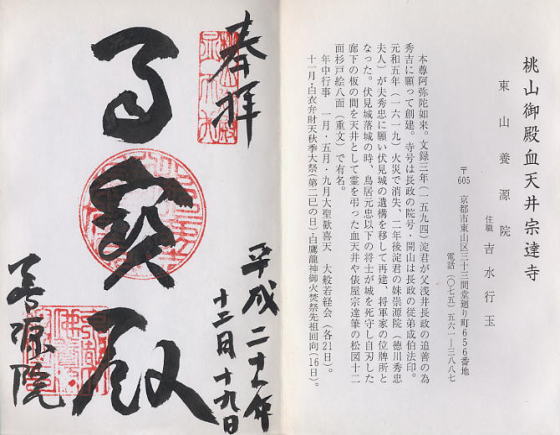 桃山御殿血天井宗達寺
東山養源院
住職 吉水行玉
〒605 京都市東山区三十三間堂廻り町656番地
電話(〇七五)五六一―三八八七
本尊阿弥陀如来。文録三年(一五九四)淀君が父浅井長政の追善の為
秀吉に願って創建。寺号は長政の院号・開山は長政の従弟成伯法印。
元和五年(一六一九)火災で消失、二年後淀君の妹崇源院(徳川秀忠
夫人)が夫秀忠に願い伏見城の遺構を移して再建、将軍家の位牌所と
なった。伏見城落城の時、鳥居元忠以下の将士が城を死守し自刃した
廊下の板の間を天井として霊を弔った血天井や俵屋宗達筆の松図十二
面杉戸絵八面(重文)で有名。
年中行事 一月・五月・九月大聖歓喜天 大般若経会(各21日)。
十一月・白衣弁財天秋季大祭(第二巳の日)・白鷹龍神御火焚祭先祖回向(16日)。
奉拝
寳殿
平成二十一年
十二月十九日
養源院